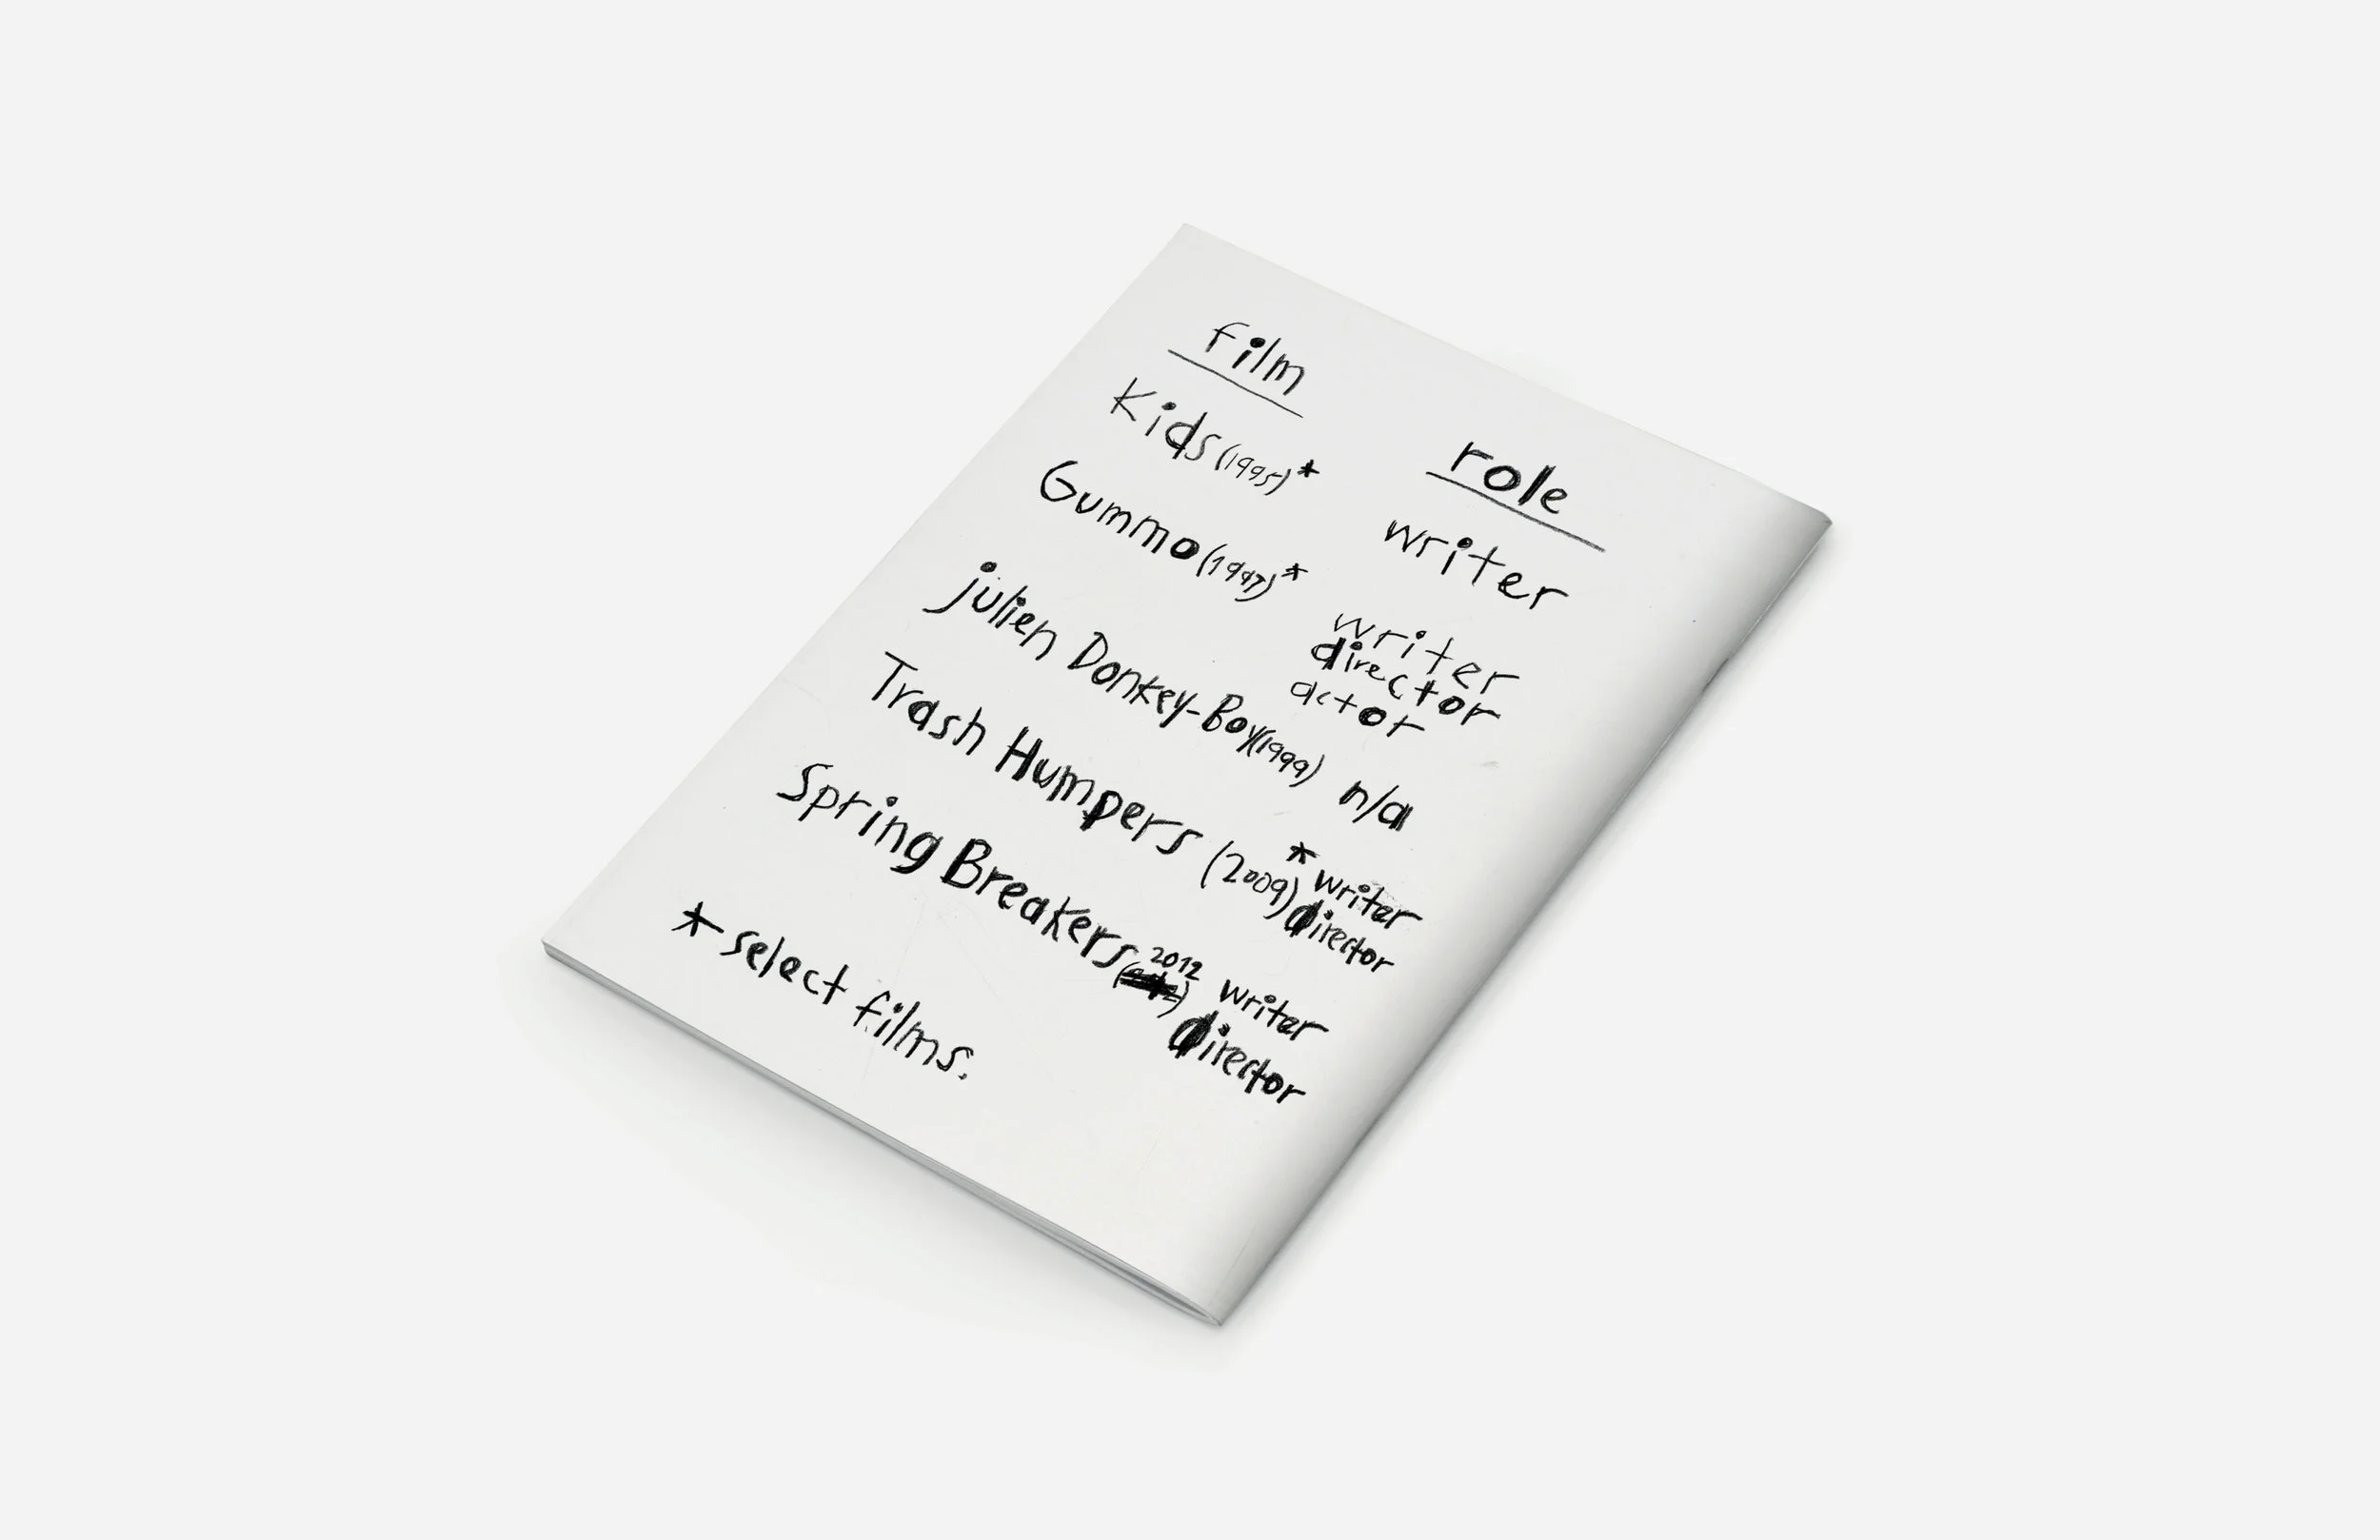 film role
Kids (1995)* writer
Gummo (1997)* writer
director
actor
julien Donkey-Boy (1999) n/a
Trash Humpers (2009)* writer
director
Spring Breakers (2012) writer
director
*-select films.